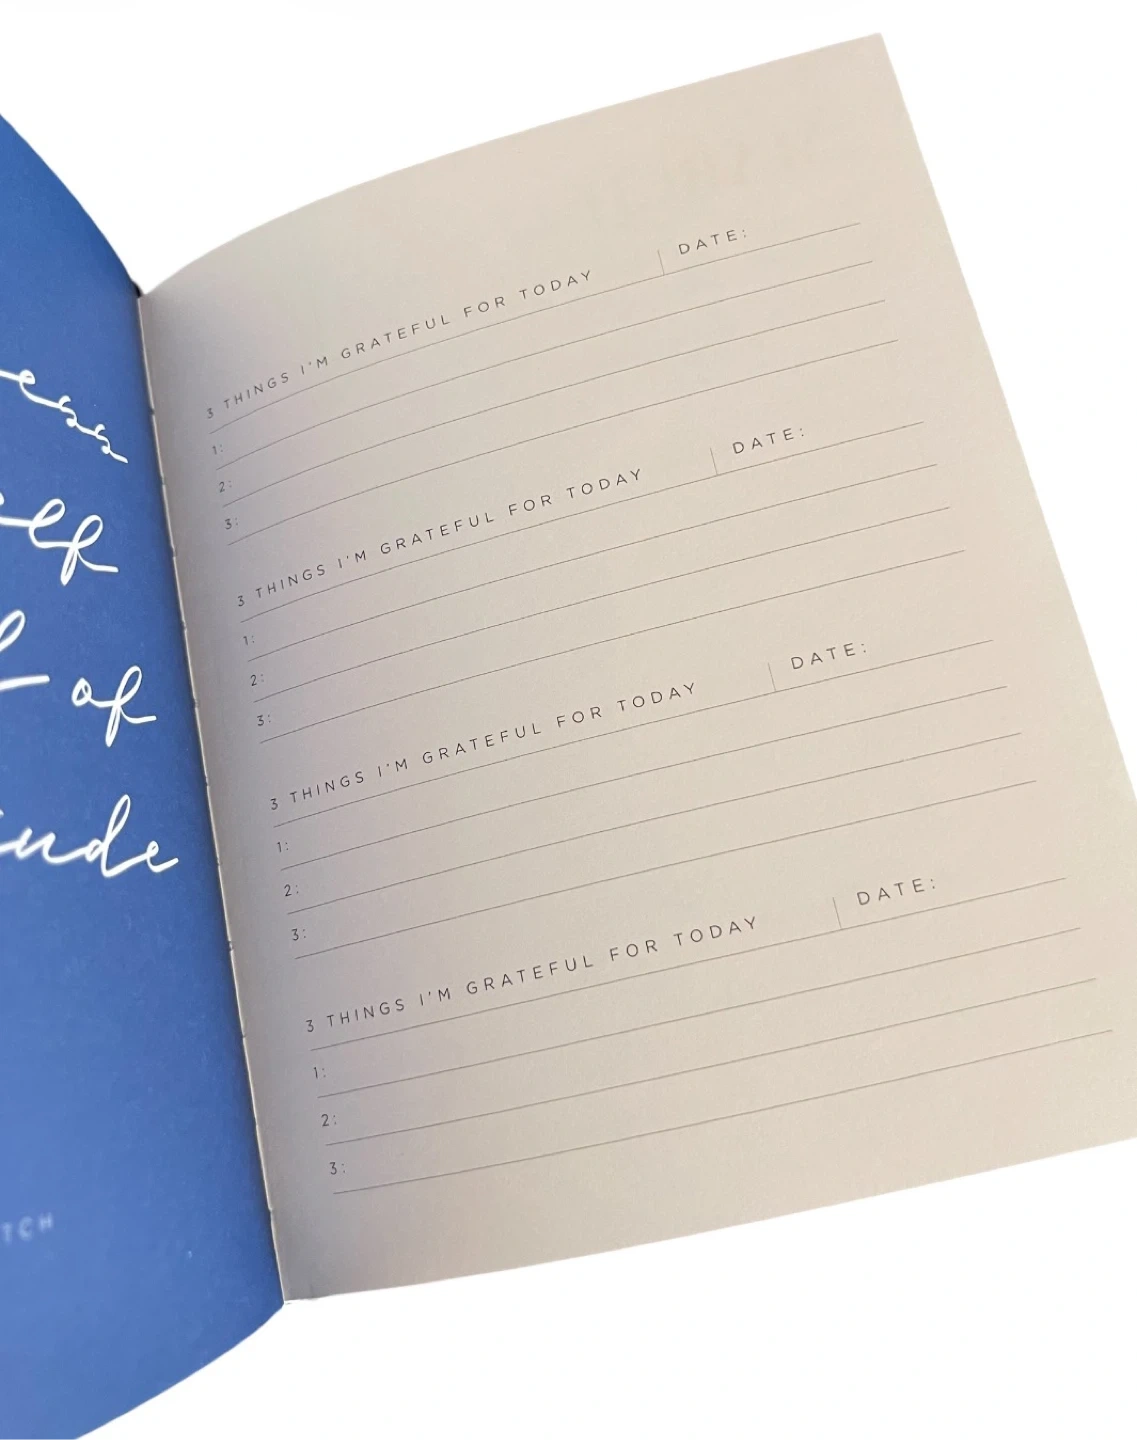 of
TCH
3 THINGS I'M GRATEFUL FOR TODAY | DATE:
1:
2:
3:
3 THINGS I'M GRATEFUL FOR TODAY | DATE:
1:
2:
3:
3 THINGS I'M GRATEFUL FOR TODAY | DATE:
1:
2:
3:
3 THINGS I'M GRATEFUL FOR TODAY | DATE:
1:
2:
3: